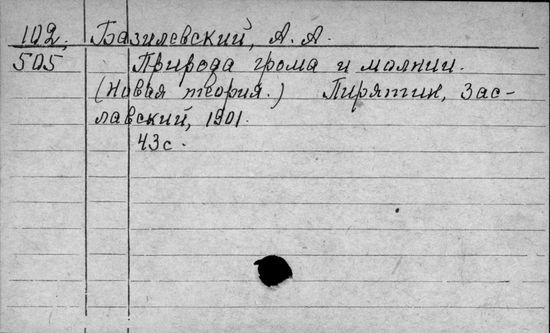 102, Базилевский, А. А.
505 Природа грома и молнии.
(Новая теория.) Пирятин, Зас-
лавский, 1901.
43с.